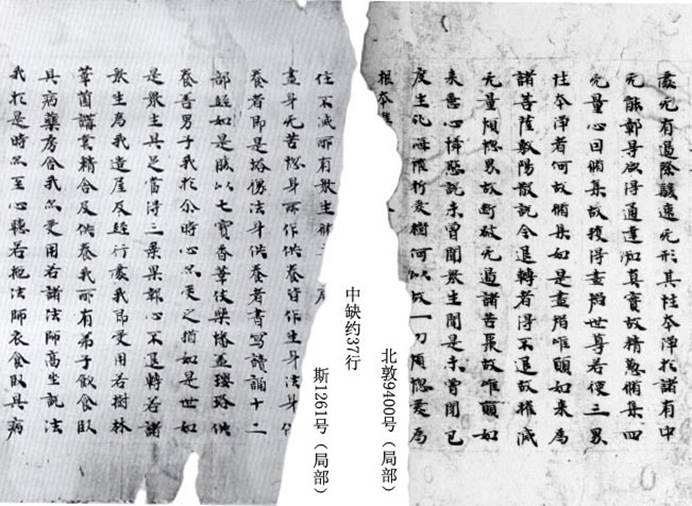 无有邊除速无形其性本淨於諸有中
无能鄣㝵欲得通達知真實故精懃脩集四
无量心回脩集故獲得盡世尊若使三界
性本淨者何故脩集如是盡唯願如來為
諸菩薩敷陽散説令退轉者得不退故摧滅
无量煩惱界故斷破无邊諸苦聚故唯願如
來慈心憐愍説未曾聞衆生聞是未曾聞已
度生死海摧折愛樹何以故一切煩惱愛為
根本
北敦9400号（局部）
中缺约37行
斯1261号（局部）
住不滅所有衆生
盡身无苦惱身所作供養皆作生身法身供
養者即是塔僧法身供養者書寫讀誦十二
部經如是勝以七寶香華伎樂幡盖瓔珞供
養善男子我於尒時心忽受之猶如是世如
是衆生具足當得三乘果報心不退轉若諸
衆生為我造屋及經行處我即受用若樹林
華菌講堂精舍及供養我所有弟子飲食臥
具病藥房舍我忽受用若諸法師高坐説法
我於是時忽至心聽若施法師衣食臥具病